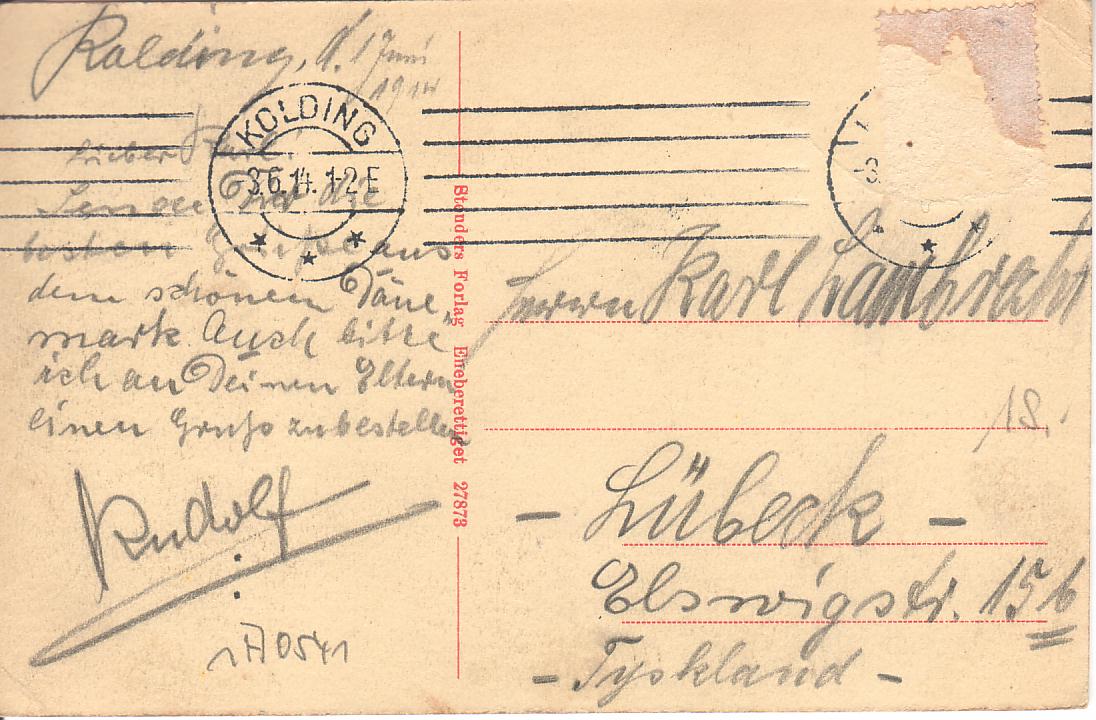 Kolding, d. 1 Juni
1914
Lieber Karl.
Sende Dir die
besten Grüße aus
dem schönen Däne„
mark. Auch bitte
ich an Deinen Eltern
einen Gruß zubestellen
Rudolf
170541
KOLDING
3.6.14. 1-2 E
Stenders Forlag Eneberettiget 27873
Herrn Karl Lambrecht
18.
— Lübeck —
Elswigstr. 15b
— Tyskland —